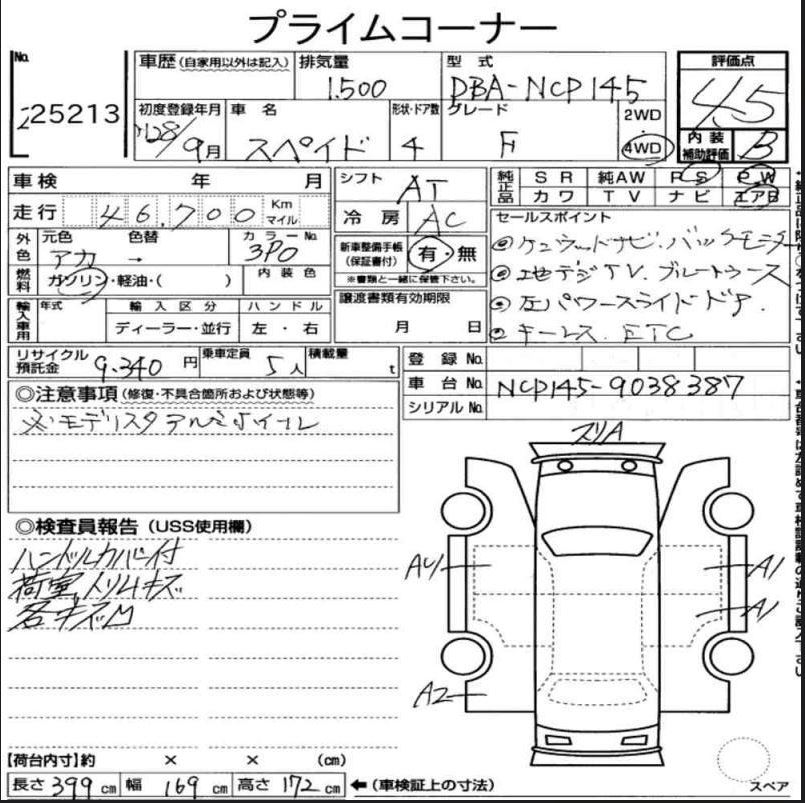 プライムコーナー
No. 25213
車歴 (自家用以外は記入)
排気量 1.500
型式 DBA-NCP145
評価点 4.5
初度登録年月 28/9月
車名 スペイド
形状・ドア数 4
グレード F
2WD
4WD
内装補助評価 B
車検 年 月
シフト AT
純正品 SR 純AW PS PW
カワ TV ナビ エアB
走行 46.700 Km マイル
冷房 AC
セールスポイント
外色 元色 アカ 色替 → カラーNo. 3P0
新車整備手帳(保証書付) 有・無
※書類と一緒に保管下さい。
◎ケンウッドナビ.バックモニター
◎地デジTV.ブルートゥース
◎左パワースライドドア.
◎キーレス.ETC
燃料 ガソリン・軽油・( ) 内装色
輸入車用 年式 輸入区分 ハンドル
ディーラー・並行 左・右
譲渡書類有効期限
月 日
リサイクル預託金 9.340円 乗車定員 5人 積載量 t
登録No.
車台No. NCP145-9038387
シリアルNo.
◎注意事項 (修復・不具合箇所および状態等)
モデリスタアルミホイール
スリA
◎検査員報告 (USS使用欄)
ハンドルカバー付
荷室トリムキズ
各キズ凹
A4
A1
A1
A2
【荷台内寸】約 × × (cm)
長さ 399 cm 幅 169 cm 高さ 172 cm ←(車検証上の寸法)
スペア